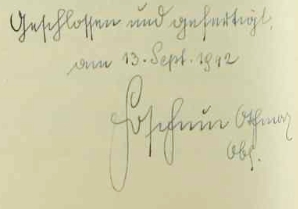 Geschlossen und gefertigt.
am 13. Sept. 1912
Othmar
Obl.